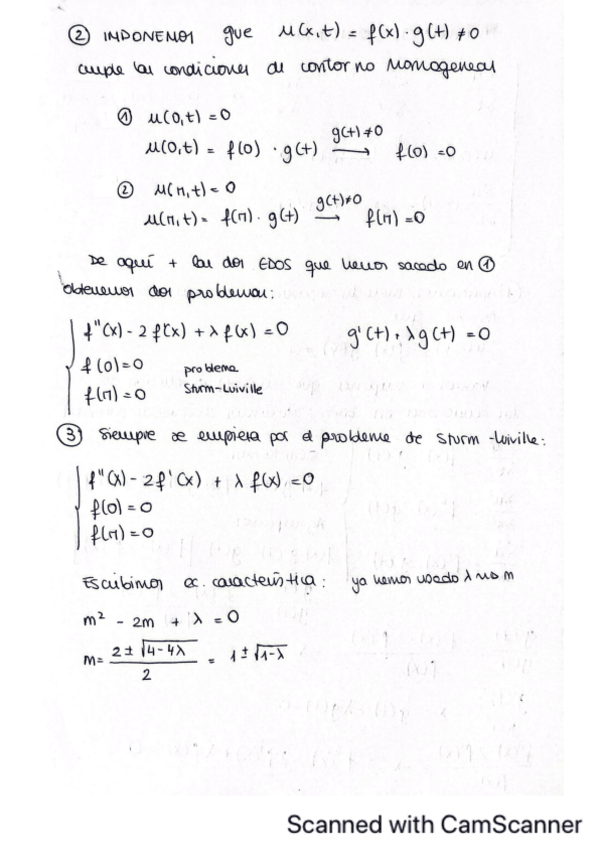 ② IMPONEMOS que u(x,t) = f(x)·g(t) ≠0
cumple las condiciones de contorno homogeneas
① u(0,t) = 0
u(0,t) = f(0) · g(t) g(t)≠0 → f(0) =0
② u(π,t) = 0
u(π,t) = f(π)· g(t) g(t)≠0 → f(π) =0
De aquí + las dos EDOS que hemos sacado en ①
obtenemos dos problemas:
f''(x) - 2f'(x) + λ f(x) = 0 g'(t) + λg(t) = 0
f(0)=0 problema
f(π) = 0 Sturm-Luiville
③ Siempre se empieza por el problema de Sturm-Luiville:
f''(x) - 2f'(x) + λ f(x) = 0
f(0) = 0
f(π) = 0
Escribimos ec. característica: ya hemos usado λ ⇝ m
m² - 2m + λ = 0
m= (2 ± √(4-4λ))/2 = 1 ± √(1-λ)
Scanned with CamScanner